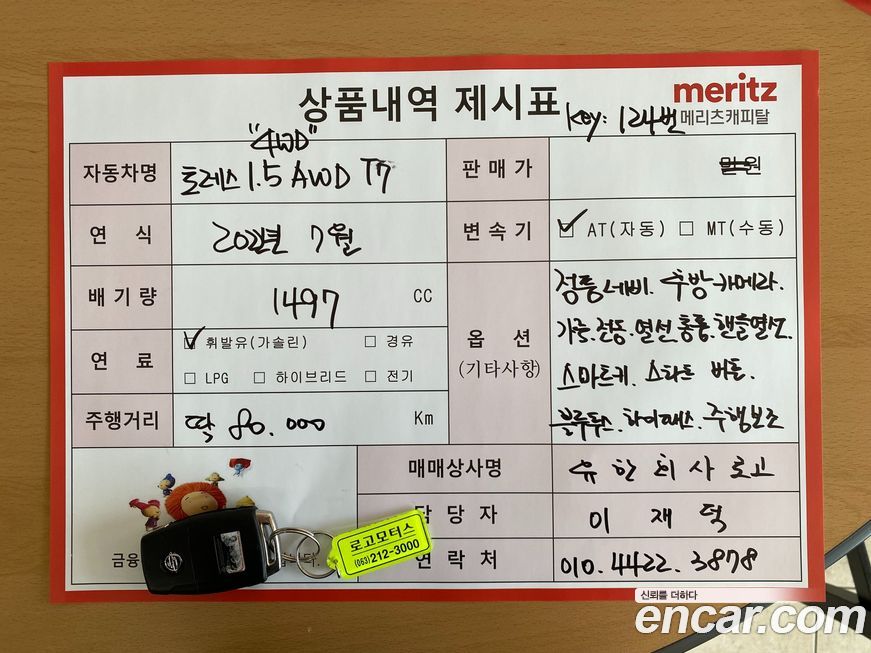 meritz
메리츠캐피탈
상품내역 제시표
Key: 124번
"4WD"
자동차명 토레스 1.5 AWD T7
판매가 만원
연 식 2022년 7월
변속기 ☑ AT(자동) □ MT(수동)
배기량 1497 CC
옵 션
(기타사항)
정품네비. 후방카메라.
가죽.전동.열선통풍.핸들열선.
스마트키. 스타트 버튼.
블루투스.하이패스.주행보조
연 료 ☑ 휘발유(가솔린) □ 경유
□ LPG □ 하이브리드 □ 전기
주행거리 딱 80.000 Km
매매상사명 유한회사로고
담당자 이재덕
연락처 010.4422.3878
금융
로고모터스
(063)212-3000
신뢰를 더하다
encar.com